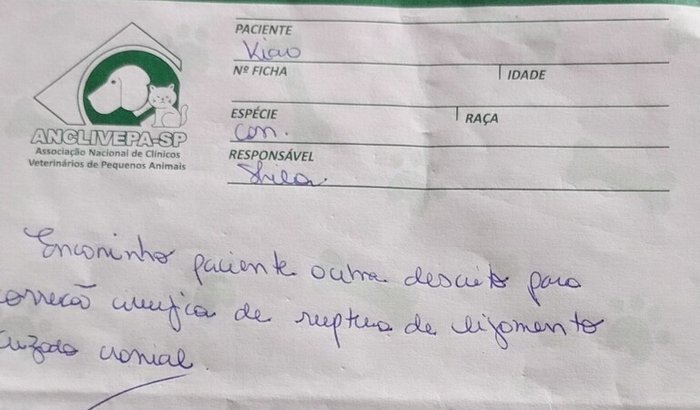 PACIENTE
Kiao
Nº FICHA
IDADE
ESPÉCIE
can.
RAÇA
RESPONSÁVEL
Shila
ANCLIVEPA-SP
Associação Nacional de Clínicos
Veterinários de Pequenos Animais
Encaminho paciente acima descrito para
correção cirurgica de ruptura de ligamento
cruzado cranial.